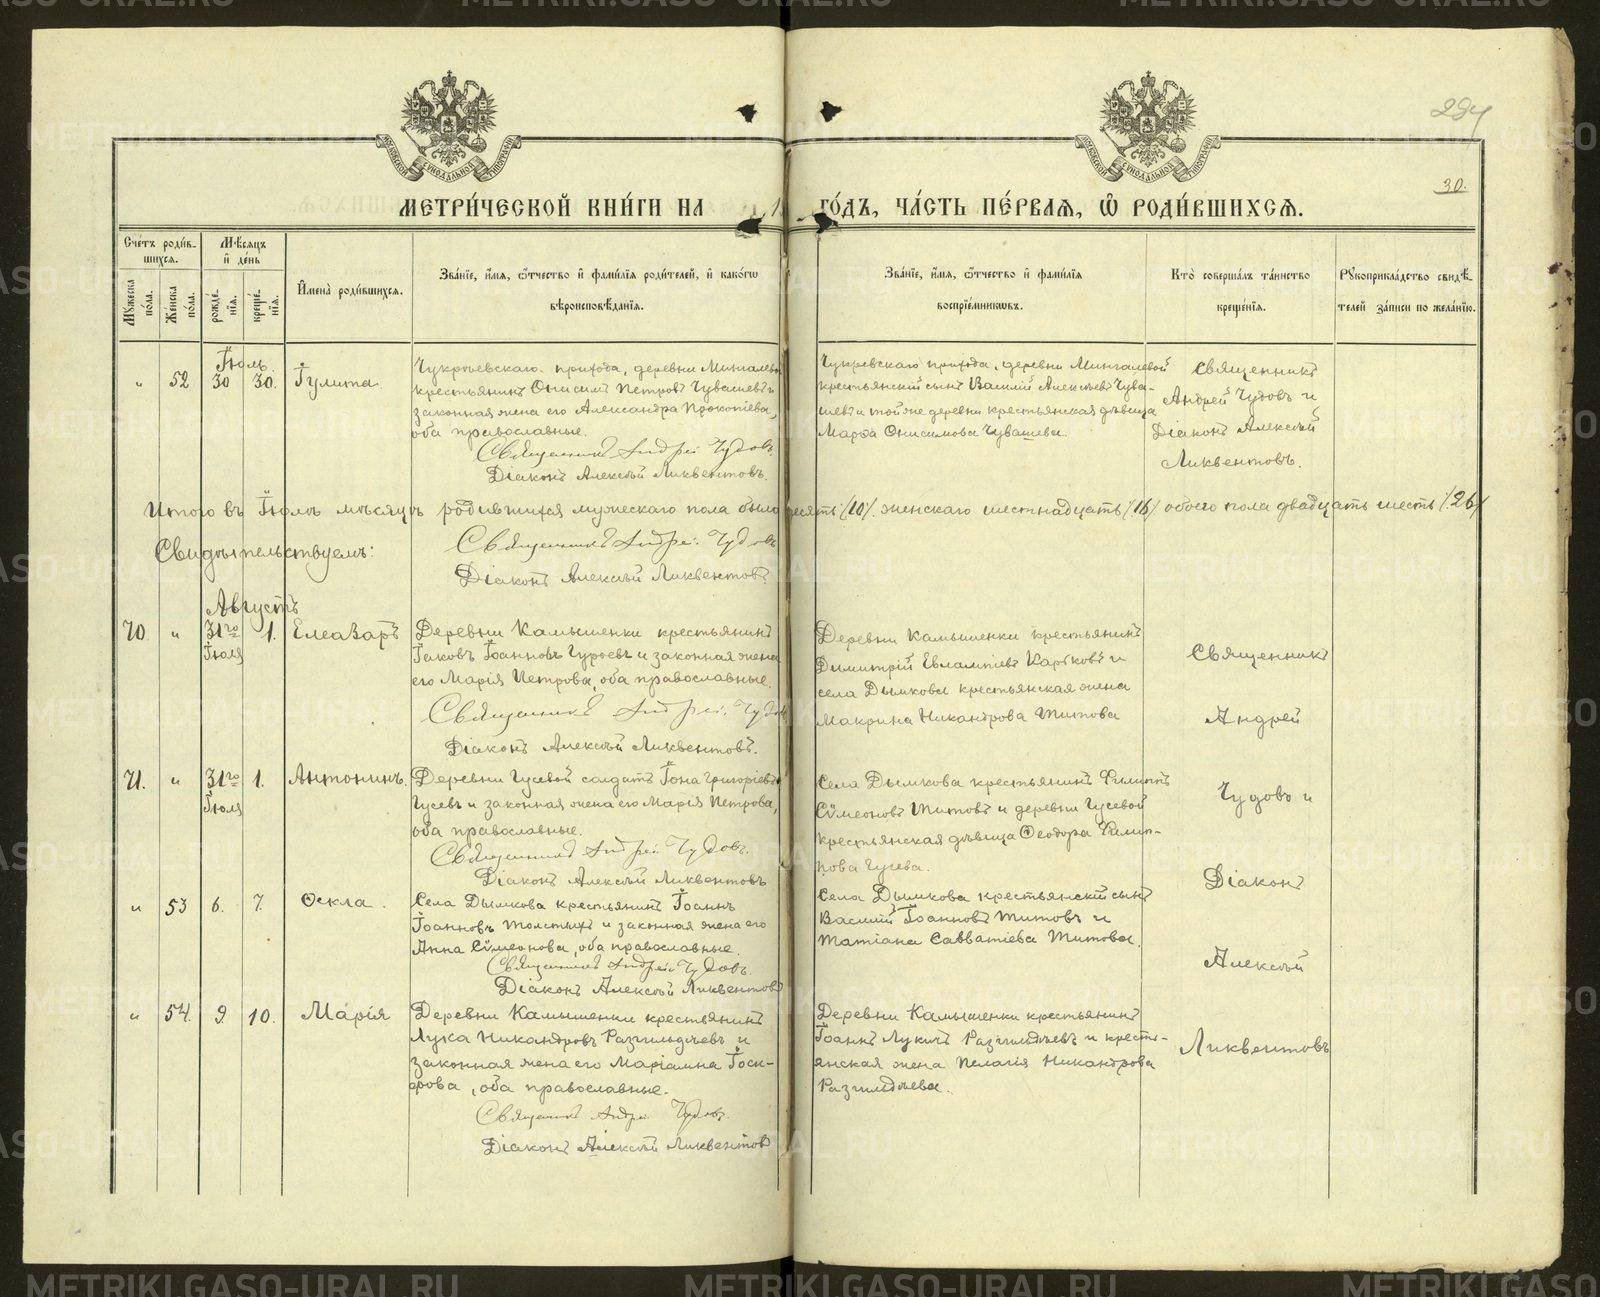 294
30.
МОСКОВСКОЙ СѴНОДАЛЬНОЙ ТИПОГРАФІИ
МОСКОВСКОЙ СѴНОДАЛЬНОЙ ТИПОГРАФІИ
МЕТРИ́ЧЕСКОЙ КНИ́ГИ НА 1 ГО́ДЪ, ЧА́СТЬ ПЕ́РВАЯ, Ѡ҆ РОДИ́ВШИХСѦ.
Сче́тъ роди́в-
шихся.
Мꙋ́жеска по́ла.
Же́нска по́ла.
Мѣ́сяцъ
и҆ де́нь
рожде́-
нїя.
креще́-
нїя.
И҆мена̀ роди́вшихся.
Зва́нїе, и҆́мя, ѻ҆́тчество и҆ фами́лїя роди́телей, и҆ како́гѡ
вѣроисповѣ́данїя.
Зва́нїе, и҆́мя, ѻ҆́тчество и҆ фами́лїя
воспрїе́мникѡвъ.
Кто̀ соверша́лъ та́инство
креще́нїя.
Рꙋкоприкла́дство свидѣ́-
телей за́писи по жела́нїю.
Іюль.
" 52 30 30. Іулита
Чукреевскаго прихода, деревни Мингалевой
крестьянинъ Онисимъ Петровъ Чувашевъ и
законная жена его Александра Прокопіева,
оба православные.
Священникъ Андрей Чудовъ.
Діаконъ Алексѣй Ликвентовъ.
Чукревскаго прихода, деревни Мингалевой
крестьянскій сынъ Василій Алексѣевъ Чува-
шевъ и той же деревни крестьянская дѣвица
Марѳа Онисимова Чувашева.
Священникъ
Андрей Чудовъ и
Діаконъ Алексѣй
Ликвентовъ.
Итого въ Іюлѣ мѣсяцѣ родившихся мужескаго пола было десять /10/. женскаго шестнадцать /16/ обоего пола двадцать шесть /26/
Свидѣтельствуемъ:
Священникъ Андрей Чудовъ
Діаконъ Алексѣй Ликвентовъ
Августъ
70. " 31го Іюля 1. Елеазаръ
Деревни Камышенки крестьянинъ
Іаковъ Іоанновъ Гурьевъ и законная жена
его Марія Петрова, оба православные.
Священникъ Андрей Чудовъ
Діаконъ Алексѣй Ликвентовъ.
Деревни Камышенки крестьянинъ
Димитрій Евлампіевъ и
села Дымкова крестьянская жена
Макрина Никандрова Титова
Священникъ
Андрей
71. " 31го Іюля 1. Антонинъ.
Деревни Гусевой солдатъ Іона Григоріевъ
Гусевъ и законная жена его Марія Петрова,
оба православные.
Священникъ Андрей Чудовъ.
Діаконъ Алексѣй Ликвентовъ
Села Дымкова крестьянинъ Филиппъ
Сѵмеоновъ Титовъ и деревни Гусевой
крестьянская дѣвица Ѳеодора Филип-
пова Гусева.
Чудовъ и
Діаконъ
" 53 6. 7. Ѳекла.
Села Дымкова крестьянинъ Іоаннъ
Іоанновъ Толстыхъ и законная жена его
Анна Сѵмеонова, оба православные.
Священникъ Андрей Чудовъ.
Діаконъ Алексѣй Ликвентовъ
Села Дымкова крестьянскій сынъ
Василій Іоанновъ Титовъ и
Татіана Савватіева Титова.
Алексѣй
" 54. 9. 10. Марія
Деревни Камышенки крестьянинъ
Лука Никандровъ Разгильдѣевъ и
законная жена его Маріамна
оба православные.
Священникъ Андрей Чудовъ.
Діаконъ Алексѣй Ликвентовъ
Деревни Камышенки крестьянинъ
Іоаннъ Лукичъ Разгильдѣевъ и кресть-
янская жена Пелагія Никандрова
Разгильдѣева.
Ликвентовъ